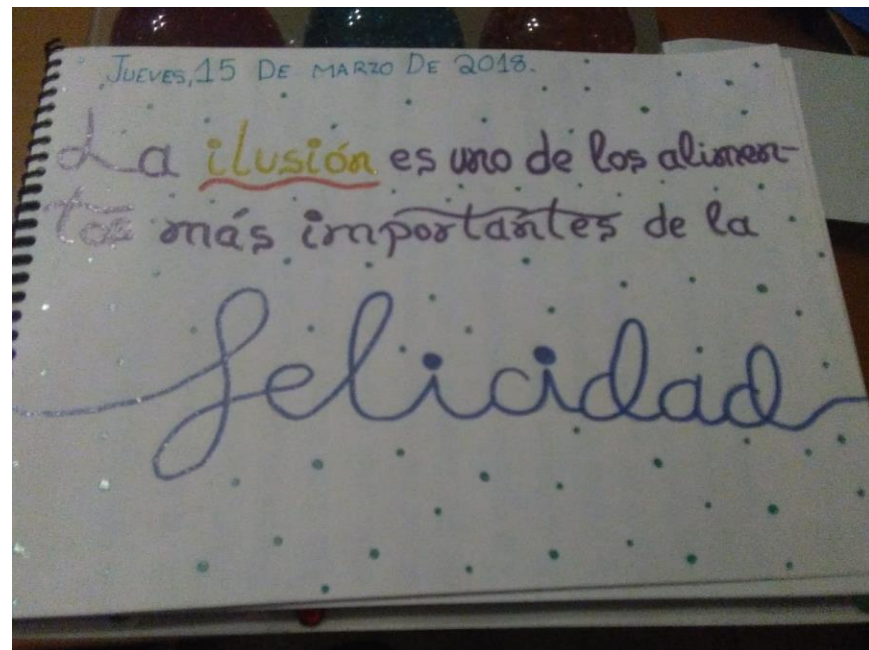 JUEVES, 15 DE MARZO DE 2018.
La ilusión es uno de los alimen-
tos más importantes de la
felicidad